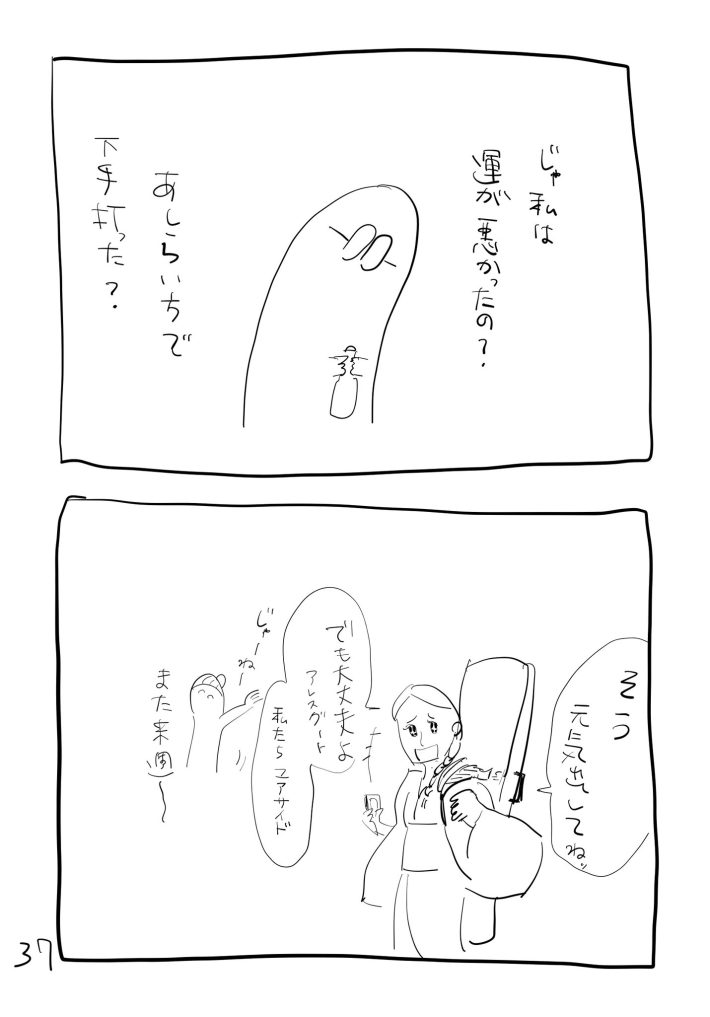 じゃ私は
運が悪かったの?
あしらいちで
下手打った?
そう
元気出してねッ
でも大丈夫よ
アレスグート
私たちユアサイド
じゃーねー
また来週〜
37